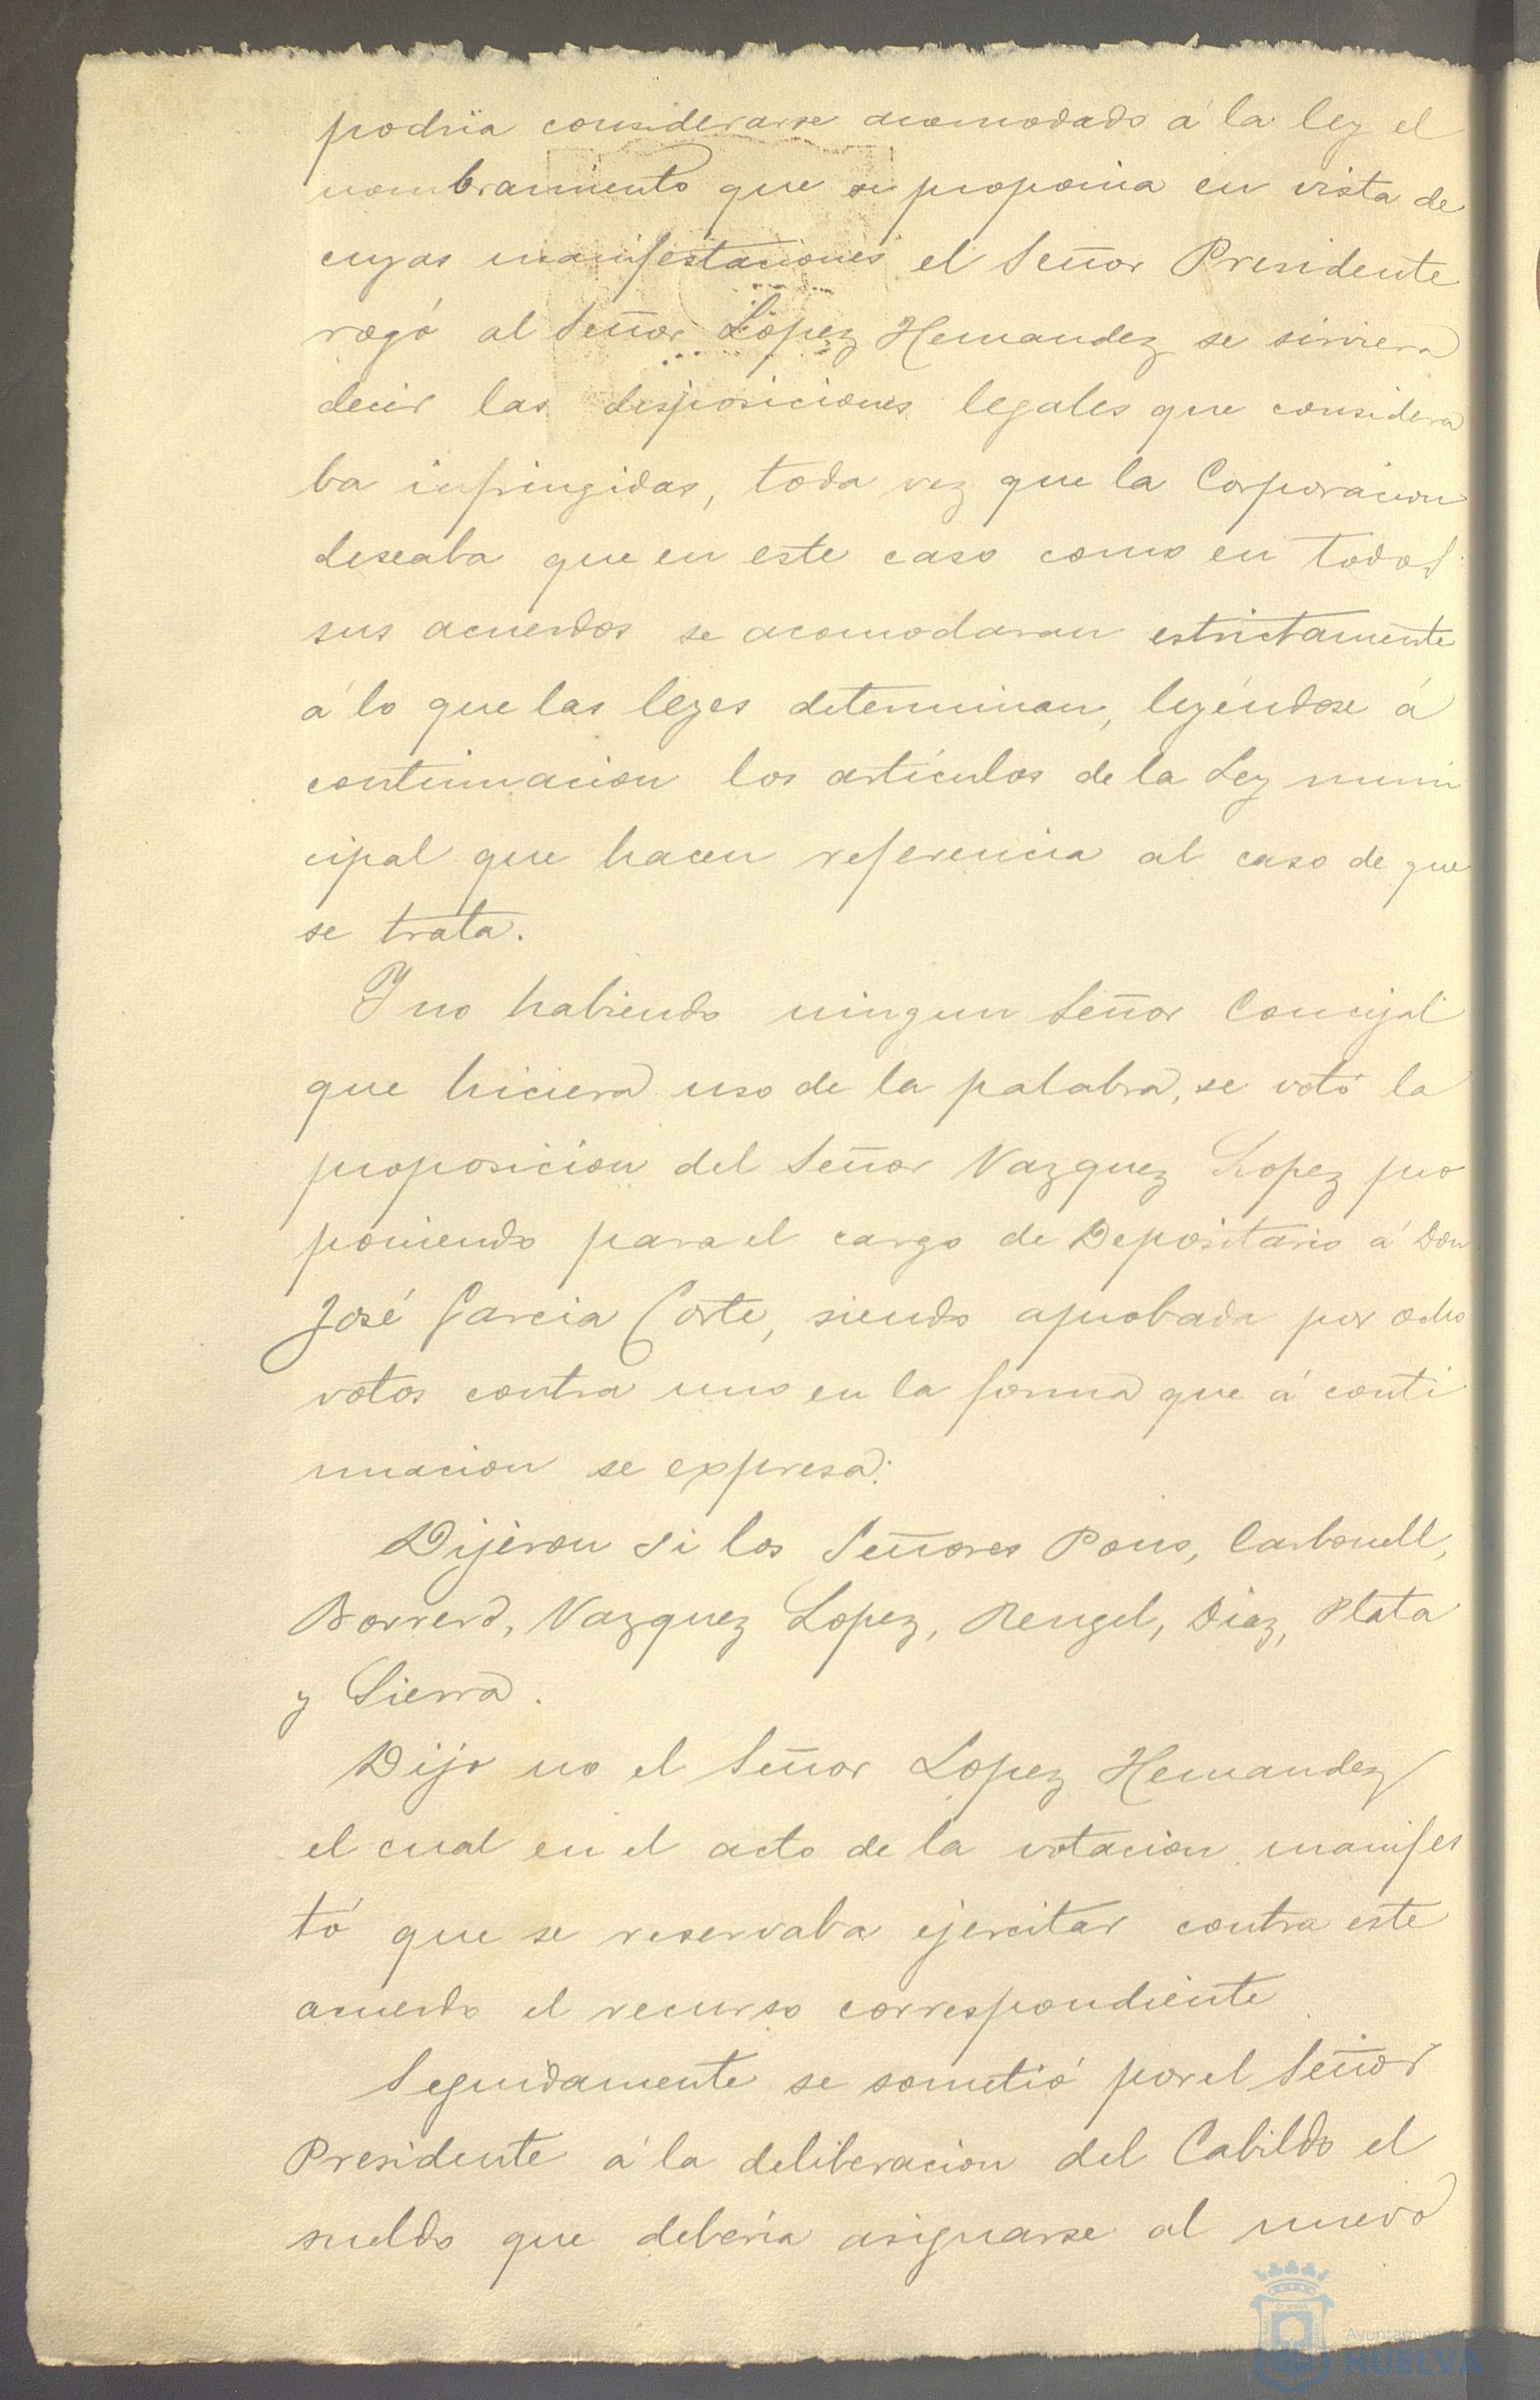 podria considerarse acomodado á la ley el
nombramiento que se proponia en vista de
cuyas manifestaciones el Señor Presidente
rogó al Señor López Hernandez se sirviera
decir las disposiciones legales que considera
ba infringidas, toda vez que la Corporacion
deseaba que en este caso como en todos
sus acuerdos se acomodaran estrictamente
á lo que las leyes determinan, leyéndose á
continuacion los artículos de la Ley muni
cipal que hacen referencia al caso de que
se trata.
Y no habiendo ningun Señor Concejal
que hiciera uso de la palabra, se votó la
proposicion del Señor Vazquez Lopez pro
poniendo para el cargo de Depositario á Don
José Garcia Corte, siendo aprobada por ocho
votos contra uno en la forma que á conti
nuacion se expresa:
Dijéron si los Señores Pons, Carbonell,
Borrero, Vazquez Lopez, Rengel, Diaz, Plata
y Sierra.
Dijo no el Señor Lopez Hernandez
el cual en el acto de la votacion manifes
tó que se reservaba ejercitar contra este
acuerdo el recurso correspondiente
Seguidamente se sometió por el Señor
Presidente á la deliberacion del Cabildo el
sueldo que deberia asignarse al nuevo
Ayuntamiento
HUELVA